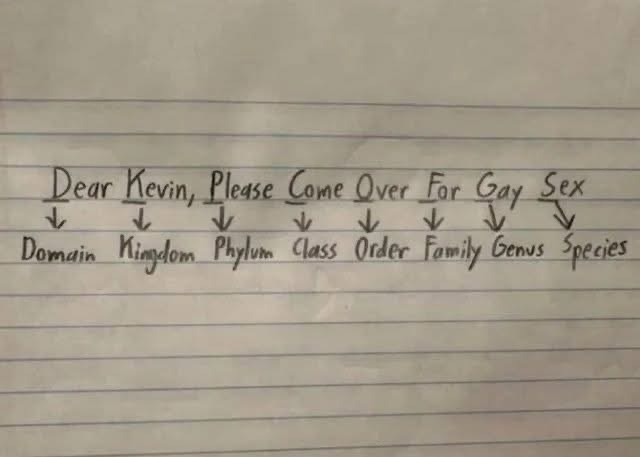 Dear Kevin, Please Come Over For Gay Sex
Domain Kingdom Phylum Class Order Family Genus Species